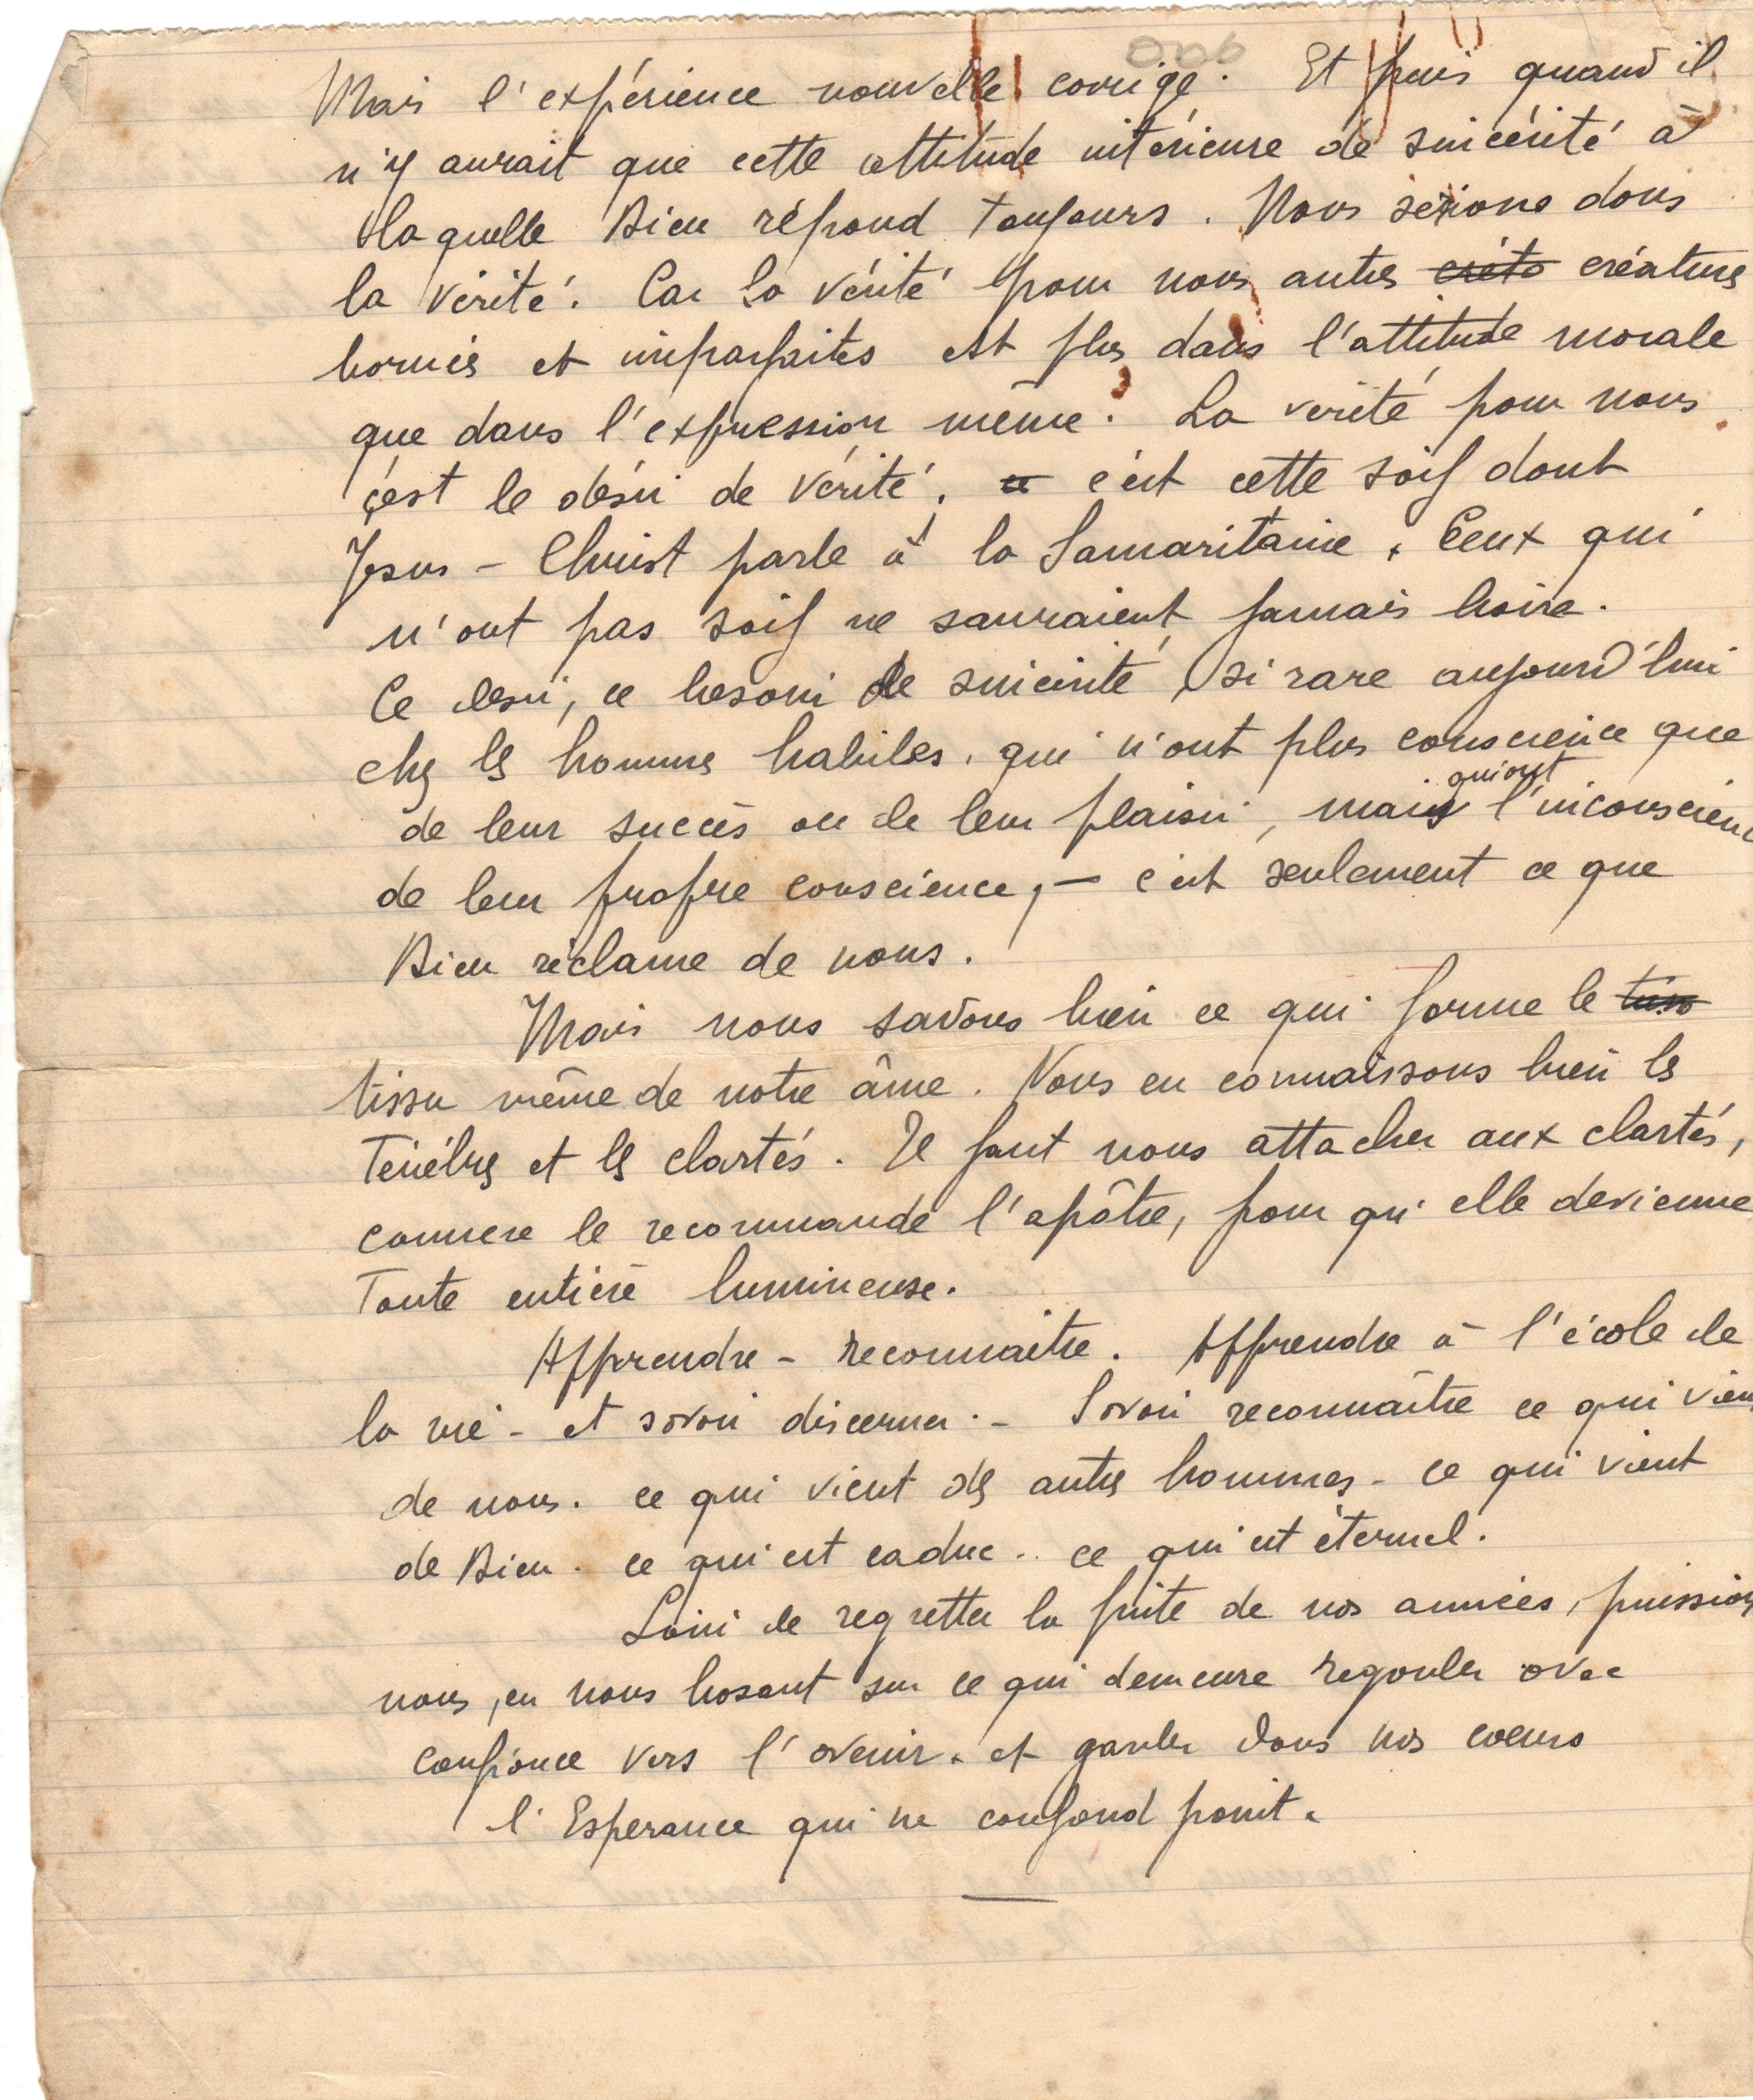 Mais l'expérience nouvelle corrige. Et puis quand il
n'y aurait que cette attitude intérieure de sincérité à
laquelle Dieu répond toujours. Nous serions dans
la vérité. Car la vérité pour nous autres créatures
bornées et imparfaites est plus dans l'attitude morale
que dans l'expression même. La vérité pour nous
c'est le désir de vérité, c'est cette soif dont
Jésus-Christ parle à la Samaritaine. Ceux qui
n'ont pas soif ne sauraient jamais boire.
Ce désir, ce besoin de sincérité, si rare aujourd'hui
chez les hommes habiles. qui n'ont plus conscience que
de leur succès ou de leur plaisir, mais qui ont l'inconscienc
de leur propre conscience, – c'est seulement ce que
Dieu réclame de nous.
Mais nous savons bien ce qui forme le
tissu même de notre âme. Nous en connaissons bien les
Ténèbres et les clartés. Il faut nous attacher aux clartés,
comme le recommande l'apôtre, pour qu'elle devienne
Toute entière lumineuse.
Apprendre – reconnaitre. Apprendre à l'école de
la vie – et savoir discerner. – Savoir reconnaître ce qui vien
de nous. ce qui vient des autres hommes – ce qui vient
de Dieu. ce qui est caduc.. ce qui est éternel.
Loin de regretter la fuite de nos années, puission
nous, en nous basant sur ce qui demeure regarder avec
confiance vers l'avenir. et garder dans nos coeurs
l'Esperance qui ne confond point.